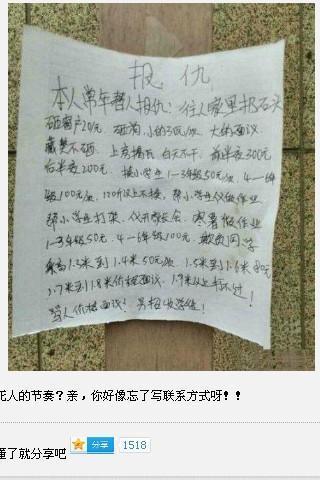 报仇
本人常年替人报仇:往人家里扔石头
砸窗户20元. 砸狗,小的30元/次. 大的面议.
藏獒不砸. 上房揭瓦 白天不干. 前半夜300元
后半夜200元. 接小学生1-3年级50元/次 4-6年
级100元/次. 120斤以上不接, 帮小学生仅做作业
帮小学生打架. 仅开家长会. 寒暑假作业
1-3年级50元. 4-6年级100元. 欺负同学
身高1.3米到1.4米50元/次. 1.5米到1.6米80元
1.7米到1.8米价格面议. 1.9米以上打不过!
骂人价格面议! 另招收学徒!
花人的节奏?亲,你好像忘了写联系方式呀!!
懂了就分享吧 分享 1518